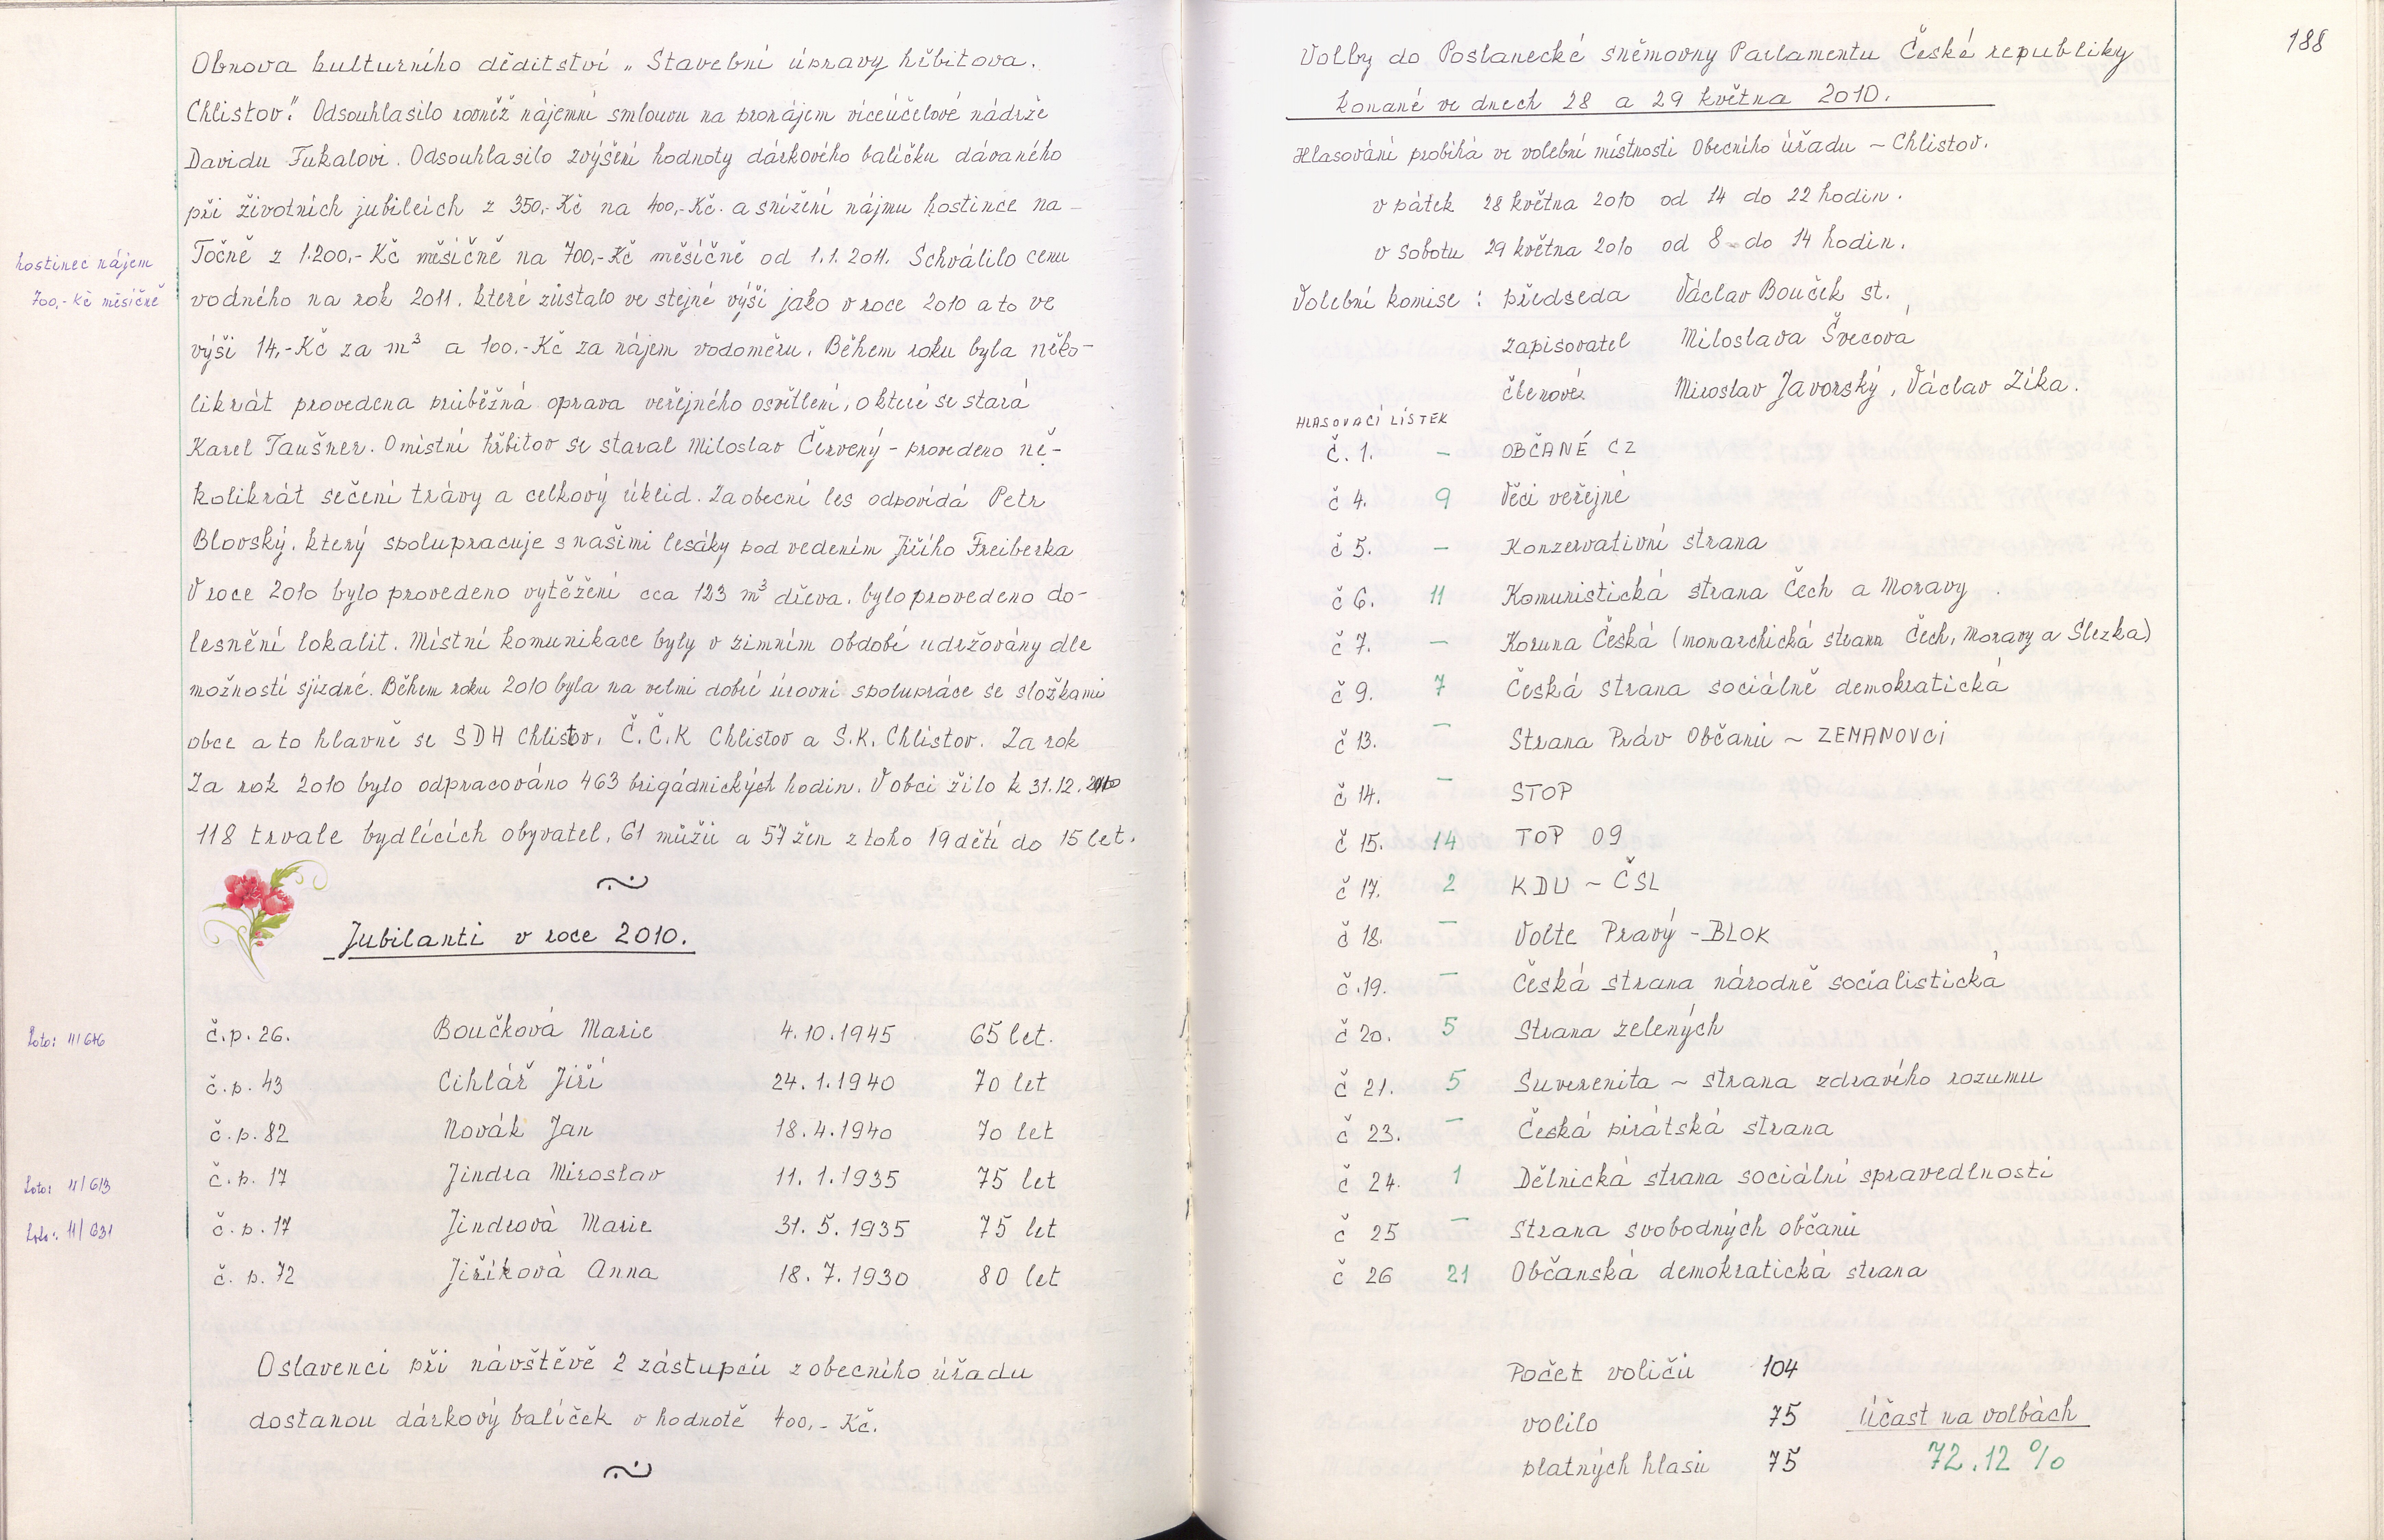 Obnova kulturního děditství „Stavební úpravy hřbitova.
Chlistov." Odsouhlasilo rovněž nájemní smlouvu na pronájem víceúčelové nádrže
Davidu Fukalovi. Odsouhlasilo zvýšení hodnoty dárkového balíčku dávaného
při životních jubileích z 350,- Kč na 400,- Kč. a snížení nájmu hostince na –
Točně z 1.200,- Kč měsíčně na 700,- Kč měsíčně od 1.1. 2011. Schválilo cenu
hostinec nájem
700,- Kč měsíčně
vodného na rok 2011. které zůstalo ve stejné výši jako v roce 2010 a to ve
výši 14,- Kč za m³ a 100.- Kč za nájem vodoměru. Během roku byla něko-
likrát provedena průběžná oprava veřejného osvětlení, o které se stará
Karel Taušner. O místní hřbitov se staral Miloslav Červený - provedeno ně-
kolikrát sečení trávy a celkový úklid. Za obecní les odpovídá Petr
Blovský. který spolupracuje s našimi lesáky pod vedením Jiřího Freiberka
V roce 2010 bylo provedeno vytěžení cca 123 m³ dřeva. bylo provedeno do-
lesnění lokalit. Místní komunikace byly v zimním období udržovány dle
možností sjízdné. Během roku 2010 byla na velmi dobré úrovni spolupráce se složkami
obce a to hlavně se SDH Chlistov, Č.Č.K Chlistov a S.K. Chlistov. Za rok
Za rok 2010 bylo odpracováno 463 brigádnických hodin. V obci žilo k 31.12. 2010
118 trvale bydlících obyvatel, 61 mužů a 57 žen z toho 19 dětí do 15 let.
Jubilanti v roce 2010.
č.p. 26. Boučková Marie 4.10.1945 65 let.
č.p. 43 Cihlář Jiří 24.1.1940 70 let
č.p. 82 Novák Jan 18.4.1940 70 let
Foto: 11/613 č.p. 17 Jindra Miroslav 11.1.1935 75 let
Foto: 11/631 č.p. 17 Jindrová Marie 31.5.1935 75 let
č. p. 72 Jiříková Anna 18.7.1930 80 let
Oslavenci při návštěvě 2 zástupců z obecního úřadu
dostanou dárkový balíček v hodnotě 400,- Kč.
188
Volby do Poslanecké sněmovny Parlamentu České republiky
konané ve dnech 28 a 29 května 2010.
Hlasování probíhá ve volební místnosti Obecního úřadu ~ Chlistov.
v pátek 28 května 2010 od 14 do 22 hodin.
v sobotu 29 května 2010 od 8 do 14 hodin.
Volební komise : předseda Václav Bouček st.
zapisovatel Miloslava Švecová
členové: Miroslav Javorský, Václav Zíka.
HLASOVACÍ LÍSTEK
č. 1. – OBČANÉ CZ
č 4. 9 Věci veřejné
č 5. – Konzervativní strana
č 6. 11 Komunistická strana Čech a Moravy
č 7. – Koruna Česká (monarchická strana Čech, Moravy a Slezka)
č 9. 7 Česká strana sociálně demokratická
č 13. – Strana Práv Občanů ~ ZEMANOVCI
č 14. – STOP
č 15. 14 TOP 09
č 17. 2 KDU ~ ČSL
č 18. – Volte Pravý - BLOK
č.19. – Česká strana národně socialistická
č 20. 5 Strana zelených
č 21. 5 Suverenita ~ strana zdravího rozumu
č 23. – Česká pirátská strana
č 24. 1 Dělnická strana sociální spravedlnosti
č 25 – Strana svobodných občanů
č 26 21 Občanská demokratická strana
Počet voličů 104
volilo 75 Účast na volbách
platných hlasů 75 72.12 %